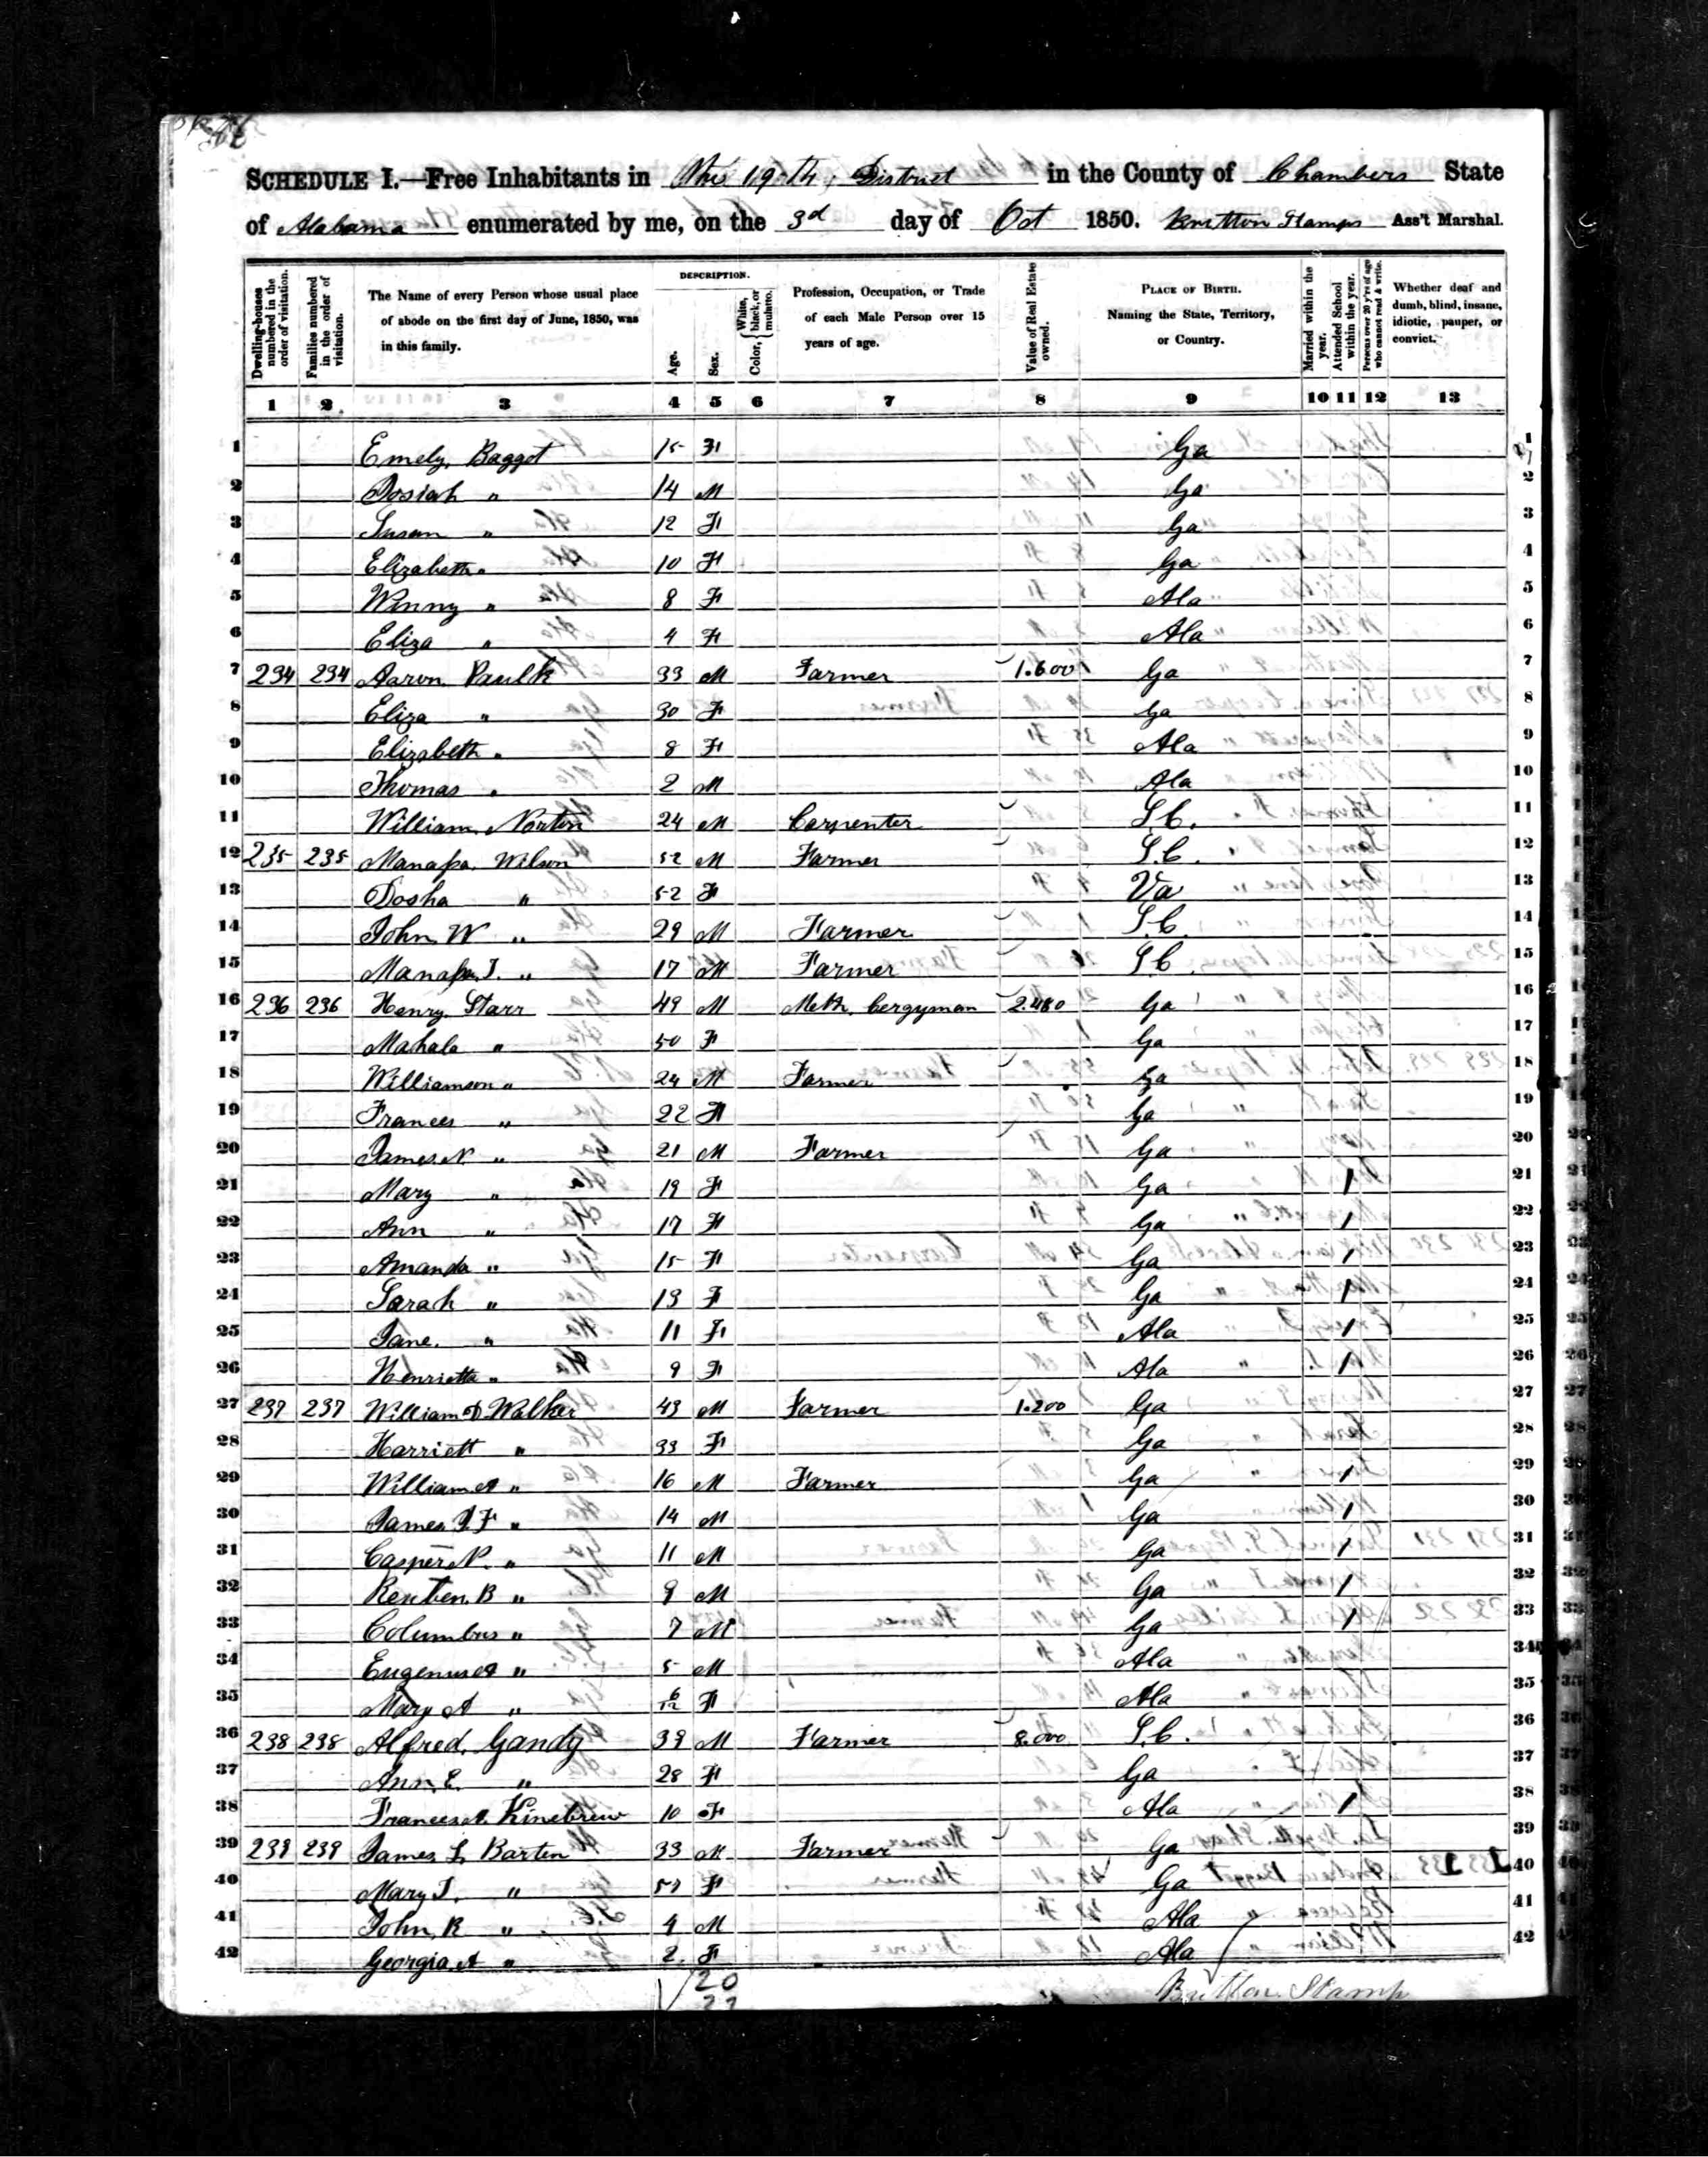 SCHEDULE I.—Free Inhabitants in The 19th District in the County of Chambers State
of Alabama enumerated by me, on the 3d day of Oct 1850. Britton Stamps Ass't Marshal.
Dwelling-houses numbered in the order of visitation.
Families numbered in the order of visitation.
The Name of every Person whose usual place of abode on the first day of June, 1850, was in this family.
DESCRIPTION.
Age.
Sex.
Color, White, black, or mulatto.
Profession, Occupation, or Trade of each Male Person over 15 years of age.
Value of Real Estate owned.
PLACE OF BIRTH. Naming the State, Territory, or Country.
Married within the year.
Attended School within the year.
Persons over 20 y'rs of age who cannot read & write.
Whether deaf and dumb, blind, insane, idiotic, pauper, or convict.
1 2 3 4 5 6 7 8 9 10 11 12 13
1 Emely Baggot 15 F Ga 1
2 Josiah " 14 M Ga 2
3 Susan " 12 F Ga 3
4 Elizabeth " 10 F Ga 4
5 Winny " 8 F Ala 5
6 Eliza " 4 F Ala 6
7 234 234 Aaron Paulk 33 M Farmer 1.600 Ga 7
8 Eliza " 30 F Ga 8
9 Elizabeth " 8 F Ala 9
10 Thomas " 2 M Ala 10
11 William Norton 24 M Carpenter S.C. 11
12 235 235 Manassa Wilson 52 M Farmer S.C. 12
13 Dosha " 52 F Va 13
14 John W " 29 M Farmer S.C. 14
15 Manassa J. " 17 M Farmer S.C. 15
16 236 236 Henry Starr 49 M Meth. Cergyman 2.480 Ga 16
17 Mahala " 50 F Ga 17
18 Williamson " 24 M Farmer Ga 18
19 Frances " 22 F Ga 19
20 James N " 21 M Farmer Ga 20
21 Mary " 19 F Ga 1 21
22 Ann " 17 F Ga 1 22
23 Amanda " 15 F Ga 1 23
24 Sarah " 13 F Ga 1 24
25 Jane " 11 F Ala 1 25
26 Henrietta " 9 F Ala 1 26
27 237 237 William D Walker 43 M Farmer 1.200 Ga 27
28 Harriett " 33 F Ga 28
29 William A " 16 M Farmer Ga 1 29
30 James J. F " 14 M Ga 1 30
31 Casper N. " 11 M Ga 1 31
32 Reuben B " 9 M Ga 1 32
33 Columbus " 7 M Ga 1 33
34 Eugenus A " 5 M Ala 34
35 Mary A " 6/12 F Ala 35
36 238 238 Alfred Gandy 39 M Farmer 8.000 S.C. 36
37 Ann E. " 28 F Ga 37
38 Frances A. Kinebrew 10 F Ala 1 38
39 239 239 James L Barten 33 M Farmer Ga 39
40 Mary J. " F Ga 40
41 John R " 4 M Ala 41
42 Georgia A " 2 F Ala 42
20
22
Britton Stamp